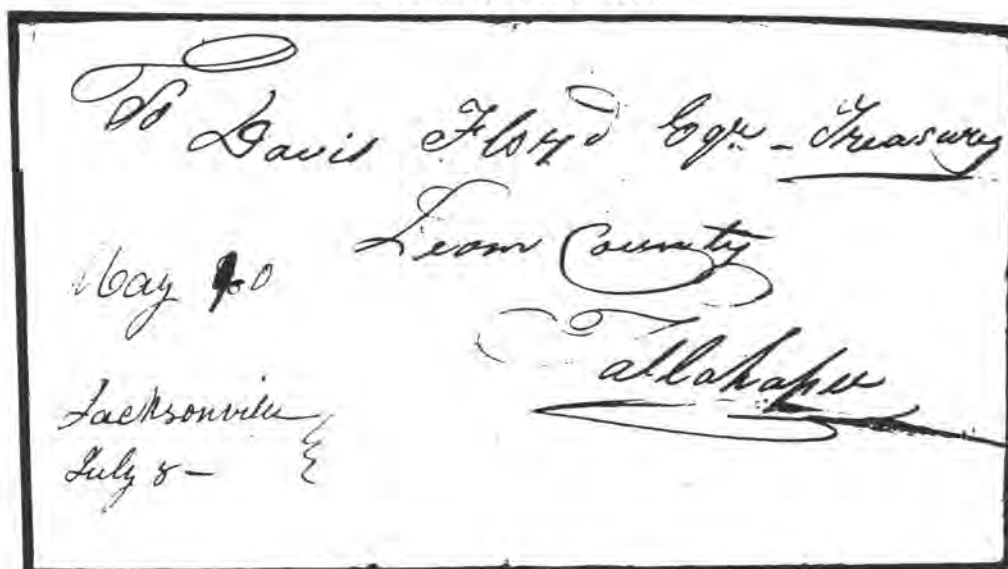 To Davis Floyd Esqr - Treasury
Leon County
Tallahassee
May 10
Jacksonville
July 8 -